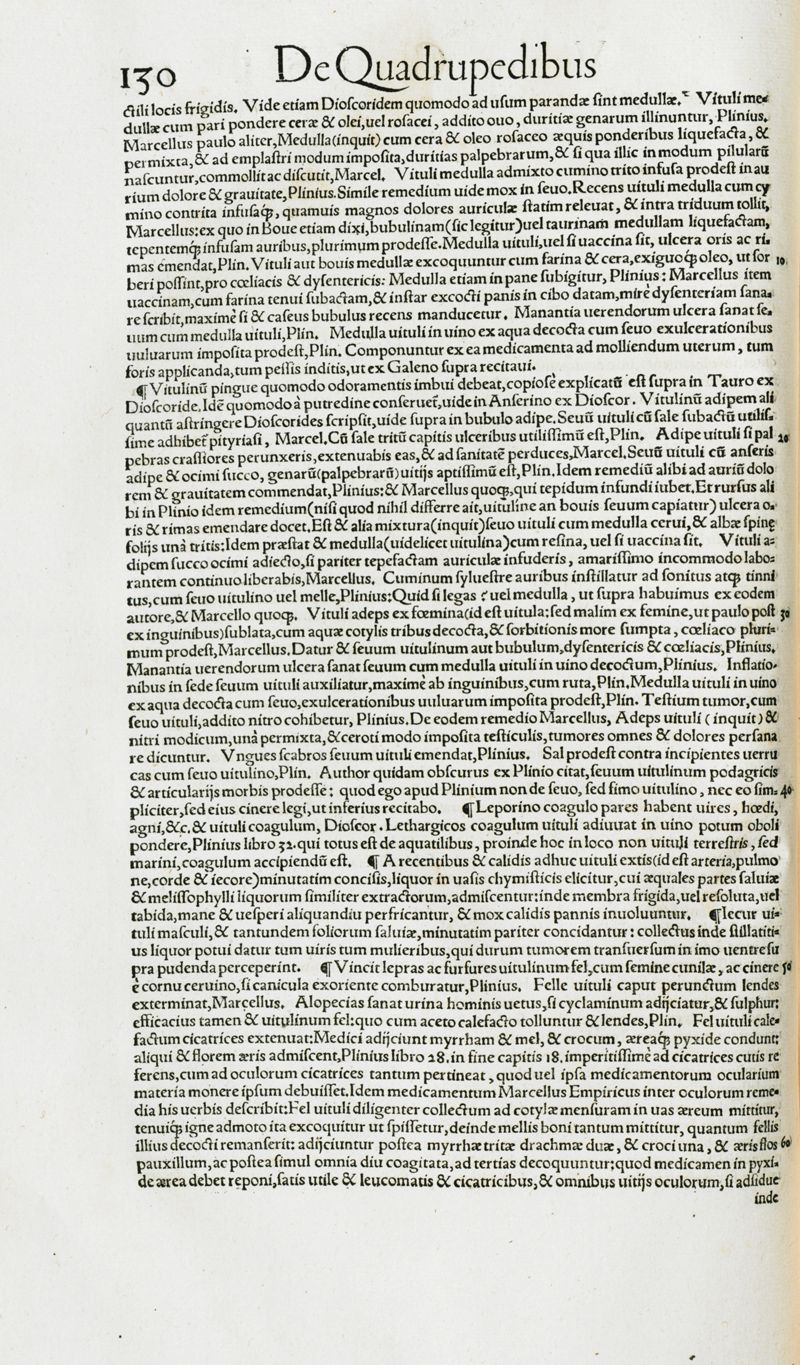 130 De Quadrupedibus
ctili locis frigidis. Vide etiam Dioſcoridem quomodo ad uſum parandæ ſint medullæ. Vituli me⸗
dullæ cum pari pondere ceræ & olei, uel roſacei, addito ouo, duritiæ genarum illinuntur, Plinius.
Marcellus paulo aliter, Medulla (inquit) cum cera & oleo roſaceo æquis ponderibus liquefacta, &
permixta, & ad emplaſtri modum impoſita, duritias palpebrarum, & ſi qua illic in modum pilularū
naſcuntur, commollit ac diſcutit, Marcel. Vituli medulla admixto cumino trito infuſa prodeſt in au
rium dolore & grauitate, Plinius. Simile remedium uide mox in ſeuo. Recens uituli medulla cum cy
mino contrita infuſaꝗ, quamuis magnos dolores auriculæ ſtatim releuat, & intra triduum tollit,
Marcellus: ex quo in Boue etiam dixi, bubulinam (ſic legitur) uel taurinam medullam liquefactam,
tepentemꝗ infuſam auribus, plurimum prodeſſe. Medulla uituli, uel ſi uaccina ſit, ulcera oris ac ri⸗
mas emendat, Plin. Vituli aut bouis medullæ excoquuntur cum farina & cera, exiguoꝗ oleo, ut ſor 10
beri poſſint, pro cœliacis & dyſentericis: Medulla etiam in pane ſubigitur, Plinius: Marcellus item
uaccinam, cum farina tenui ſubactam, & inſtar excocti panis in cibo datam, mirè dyſenteriam ſana⸗
re ſcribit, maximè ſi & caſeus bubulus recens manducetur. Manantia uerendorum ulcera ſanat ſe⸗
uum cum medulla uituli, Plin. Medulla uituli in uino ex aqua decocta cum ſeuo exulcerationibus
uuluarum impoſita prodeſt, Plin. Componuntur ex ea medicamenta ad molliendum uterum, tum
foris applicanda, tum peſſis inditis, ut ex Galeno ſupra recitaui.
¶ Vitulinū pingue quomodo odoramentis imbui debeat, copioſè explicatū eſt ſupra in Tauro ex
Dioſcoride. Idē quomodo à putredine conſeruet̃, uide in Anſerino ex Dioſcor. Vitulinū adipem ali
quantū aſtringere Dioſcorides ſcripſit, uide ſupra in bubulo adipe. Seuū uituli cū ſale ſubactū utiliſ⸗
ſime adhibet̃ pityriaſi, Marcel. Cū ſale tritū capitis ulceribus utiliſſimū eſt, Plin. Adipe uituli ſi pal 20
pebras craſſiores perunxeris, extenuabis eas, & ad ſanitatē perduces, Marcel. Seuū uituli cū anſeris
adipe & ocimi ſucco, genarū (palpebrarū) uitijs aptiſſimū eſt, Plin. Idem remediū alibi ad auriū dolo
rem & grauitatem commendat, Plinius: & Marcellus quoꝗ, qui tepidum infundi iubet. Et rurſus ali
bi in Plinio idem remedium (niſi quod nihil differre ait, uituli ne an bouis ſeuum capiatur) ulcera o⸗
ris & rimas emendare docet. Eſt & alia mixtura (inquit) ſeuo uituli cum medulla cerui, & albæ ſpinę
folijs unà tritis: Idem præſtat & medulla (uidelicet uitulina) cum reſina, uel ſi uaccina ſit. Vituli a⸗
dipem ſucco ocimi adiecto, ſi pariter tepefactam auriculæ infuderis, amariſſimo incommodo labo⸗
rantem continuo liberabis, Marcellus. Cuminum ſylueſtre auribus inſtillatur ad ſonitus atꝗ tinni
tus, cum ſeuo uitulino uel melle, Plinius: Quid ſi legas: uel medulla, ut ſupra habuimus ex eodem
autore, & Marcello quoꝗ. Vituli adeps ex fœmina (id eſt uitula: ſed malim ex femine, ut paulo poſt 30
ex inguinibus) ſublata, cum aquæ cotylis tribus decocta, & ſorbitionis more ſumpta, cœliaco pluri⸗
mum prodeſt, Marcellus. Datur & ſeuum uitulinum aut bubulum, dyſentericis & cœliacis, Plinius.
Manantia uerendorum ulcera ſanat ſeuum cum medulla uituli in uino decoctum, Plinius. Inflatio⸗
nibus in ſede ſeuum uituli auxiliatur, maximè ab inguinibus, cum ruta, Plin. Medulla uituli in uino
ex aqua decocta cum ſeuo, exulcerationibus uuluarum impoſita prodeſt, Plin. Teſtium tumor, cum
ſeuo uituli, addito nitro cohibetur, Plinius. De eodem remedio Marcellus, Adeps uituli (inquit) &
nitri modicum, unà permixta, & ceroti modo impoſita teſticulis, tumores omnes & dolores perſana
re dicuntur. Vngues ſcabros ſeuum uituli emendat, Plinius. Sal prodeſt contra incipientes uerru
cas cum ſeuo uitulino, Plin. Author quidam obſcurus ex Plinio citat, ſeuum uitulinum podagricis
& articularijs morbis prodeſſe: quod ego apud Plinium non de ſeuo, ſed fimo uitulino, nec eo ſim⸗ 40
pliciter, ſed eius cinere legi, ut inferius recitabo. ¶ Leporino coagulo pares habent uires, hœdi,
agni, &c. & uituli coagulum, Dioſcor. Lethargicos coagulum uituli adiuuat in uino potum oboli
pondere, Plinius libro 32. qui totus eſt de aquatilibus, proinde hoc in loco non uituli terreſtris, ſed
marini, coagulum accipiendū eſt. ¶ A recentibus & calidis adhuc uituli extis (id eſt arteria, pulmo
ne, corde & iecore) minutatim conciſis, liquor in uaſis chymiſticis elicitur, cui æquales partes ſaluiæ
& meliſſophylli liquorum ſimiliter extractorum, admiſcentur: inde membra frigida, uel reſoluta, uel
tabida, mane & ueſperi aliquandiu perfricantur, & mox calidis pannis inuoluuntur. ¶ Iecur ui⸗
tuli maſculi, & tantundem foliorum ſaluiæ, minutatim pariter concidantur: collectus inde ſtillatiti⸗
us liquor potui datur tum uiris tum mulieribus, qui durum tumorem tranſuerſum in imo uentre ſu
pra pudenda perceperint. ¶ Vincit lepras ac furfures uitulinum fel, cum ſemine cunilæ, ac cinere 50
è cornu ceruino, ſi canicula exoriente comburatur, Plinius. Felle uituli caput perunctum lendes
exterminat, Marcellus. Alopecias ſanat urina hominis uetus, ſi cyclaminum adijciatur, & ſulphur:
efficacius tamen & uitulinum fel: quo cum aceto calefacto tolluntur & lendes, Plin. Fel uituli cale⸗
factum cicatrices extenuat: Medici adijciunt myrrham & mel, & crocum, æreaꝗ pyxide condunt:
aliqui & florem æris admiſcent, Plinius libro 28. in fine capitis 18. imperitiſſimè ad cicatrices cutis re
ferens, cum ad oculorum cicatrices tantum pertineat, quod uel ipſa medicamentorum ocularium
materia monere ipſum debuiſſet. Idem medicamentum Marcellus Empiricus inter oculorum reme⸗
dia his uerbis deſcribit: Fel uituli diligenter collectum ad cotylæ menſuram in uas æreum mittitur,
tenuiꝗ igne admoto ita excoquitur ut ſpiſſetur, deinde mellis boni tantum mittitur, quantum fellis
illius decocti remanſerit: adijciuntur poſtea myrrhæ tritæ drachmæ duæ, & croci una, & æris flos 60
pauxillum, ac poſtea ſimul omnia diu coagitata, ad tertias decoquuntur: quod medicamen in pyxi⸗
de ærea debet reponi, ſatis utile & leucomatis & cicatricibus, & omnibus uitijs oculorum, ſi adſidue
inde